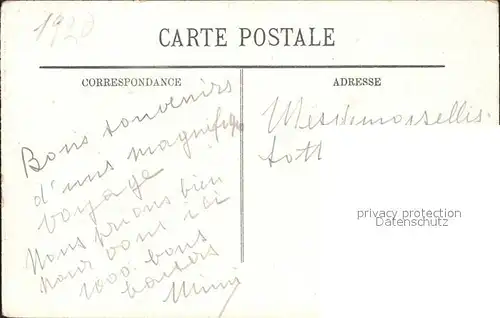 1920
CARTE POSTALE
CORRESPONDANCE
ADRESSE
Bons souvenirs
d'une magnifique
voyage
Nous prions bien
pour vous ici
1000 bons
baisers
Mimi
Mesdemoiselles
Lott
privacy protection
Datenschutz